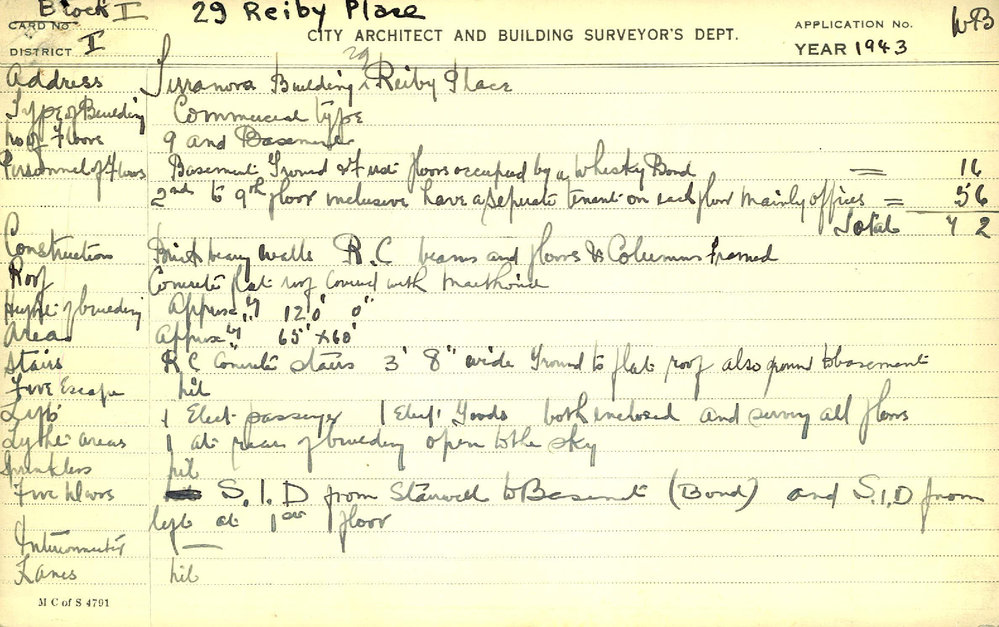 Block I 29 Reiby Place
CARD No. CITY ARCHITECT AND BUILDING SURVEYOR'S DEPT. APPLICATION No. WB
DISTRICT I 29 YEAR 1943
Address Building Reiby Place
Type of Building Commercial type
No of Floors 9 and Basement
Personnel of Floors Basement Ground & First floors occupied by a Whisky Bond = 16
2nd to 9th floor inclusive have a seperate tenant on each floor mainly offices = 56
Total 72
Construction Brick walls R.C beams and floors & Columns Framed
Roof Concrete flat roof covered with
Hight of building Approx 120' 0"
Area Approx 65' x 60'
Stairs R C Concrete stairs 3' 8" wide Ground to flat roof also ground to basement
Fire Escape nil
Lifts 1 Elect. passenger 1 Elect. Goods both enclosed and serving all floors
Light areas 1 at rear of building open to the sky
Sprinklers nil
Fire Doors S.I.D from Stairwell to Basement (Bond) and S.I.D from
lift at 1st floor
—
Lanes nil
M C of S 4791